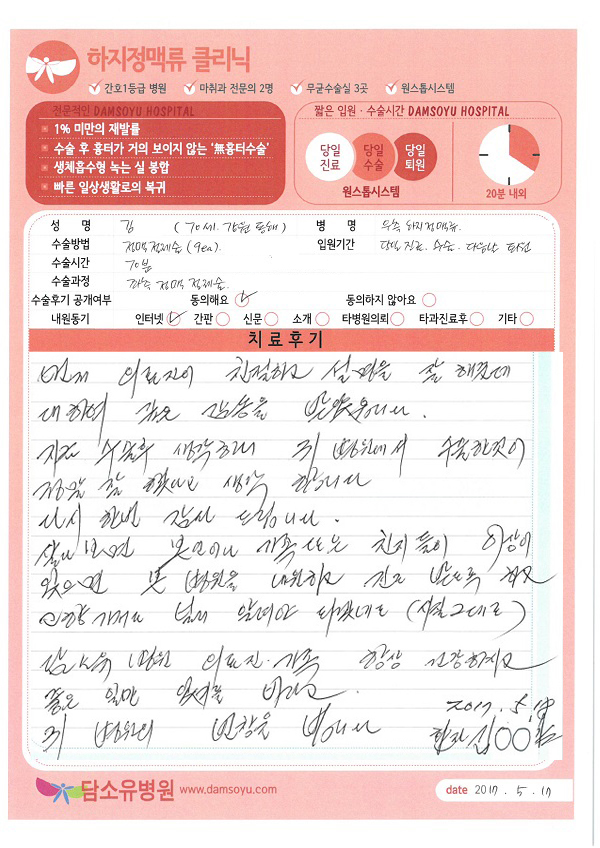 하지정맥류 클리닉
간호1등급 병원 마취과 전문의 2명 무균수술실 3곳 원스톱시스템
전문적인 DAMSOYU HOSPITAL
1% 미만의 재발률
수술 후 흉터가 거의 보이지 않는 '無흉터수술'
생체흡수형 녹는 실 봉합
빠른 일상생활로의 복귀
짧은 입원 · 수술시간 DAMSOYU HOSPITAL
당일 진료 당일 수술 당일 퇴원
원스톱시스템
20분 내외
성 명 김 (70세. 강원 동해) 병 명 우측 하지정맥류.
수술방법 정맥절제술 (9ea). 입원기간 당일 진료. 수술. 다음날 퇴원
수술시간 70분
수술과정 정맥 절제술.
수술후기 공개여부 동의해요 동의하지 않아요
내원동기 인터넷 간판 신문 소개 타병원의뢰 타과진료후 기타
치료후기
먼저 의료진이 친절하고 설명을 잘 해줬는데
대하여 깊은 감동을 받았읍니다.
지금 수술후 생각하니 귀 병원에서 수술한것이
정말 잘 했다고 생각 합니다
다시 한번 감사 드립니다.
살다 보면 본인이나 가족 또는 친지들이 이상이
있으면 본 병원을 내원하고 진료 받도록 하고
널리 알려야 되겠네요 (사실 그대로)
담소유 병원 의료진. 가족 항상 건강하시고
좋은 일만 있기를 바라고
귀 병원의 번창을 빕니다
2017. 5. 17
환자 김○○
담소유병원 www.damsoyu.com
date 2017. 5. 17